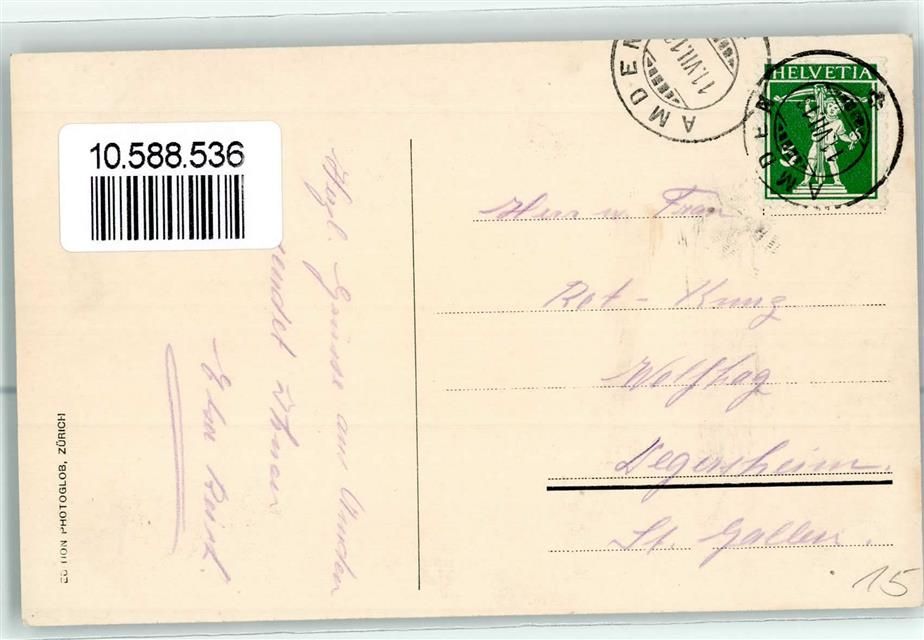 10.588.536
Herzl. Grüsse aus Amden
sendet Ihnen
EDITION PHOTOGLOB, ZÜRICH
AMDEN
11.VII.1
HELVETIA
AMDEN
Herr u. Frau
Ret - Kunz
Wolfhag
Degersheim.
St. Gallen.
15